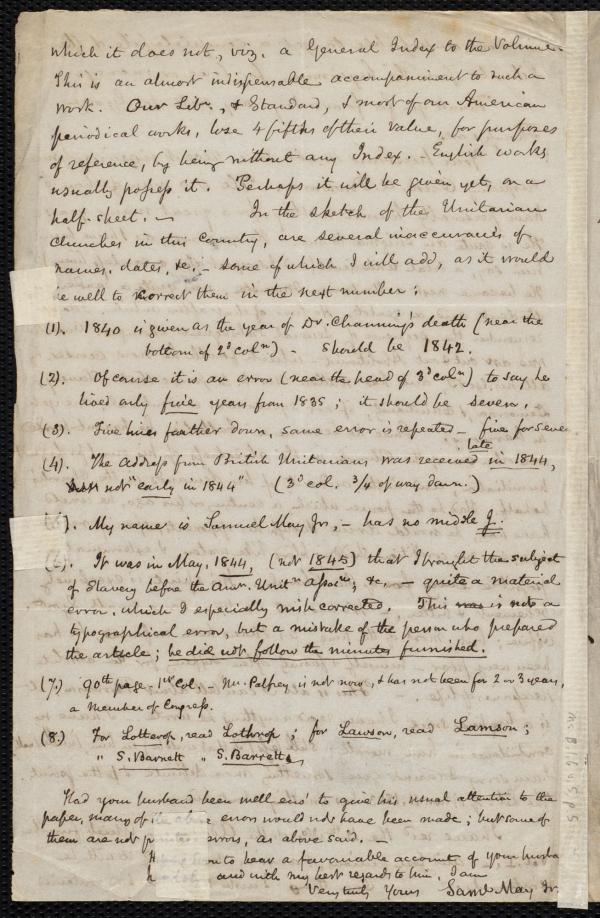 which it does not, viz. a General Index to the Volume.
This is an almost indispensable accompaniment to such a
work. Our Libr., & Standard, & most of our American
periodical works, lose 4 fifths of their value, for purposes
of reference, by being without any Index. - English works
usually possess it. Perhaps it will be given yet, on a
half-sheet. - In the sketch of the Unitarian
Churches in this Country, are several inaccuracies of
names, dates, &c. - some of which I will add, as it would
be well to correct them in the next number:
(1). 1840 is given as the year of Dr. Channing's death (near the
bottom of 2d coln) - should be 1842.
(2). Of course it is an error (near the head of 3d coln) to say he
lived only five years from 1835; it should be seven.
(3). Five lines farther down, same error is repeated - five for seven
(4). The Address from British Unitarians was received late in 1844,
not "early in 1844" (3d col. 3/4 of way down.)
). My name is Samuel May Jr, - has no middle J.
). It was in May, 1844, (not 1845) that I brought the subject
of Slavery before the Amn. Unitn Associn, &c. - quite a material
error, which I especially wish corrected. This was is not a
typographical error, but a mistake of the person who prepared
the article; he did not follow the minutes furnished.
(7.) 90th page - 1st Col. - Mr. Palfrey is not now, & has not been for 2 or 3 years,
a member of Congress.
(8.) For Lotterop, read Lothrop; for Lawson, read Lamson;
" S. Barnett " S. Barrett
Had your husband been well eno' to give his usual attention to the
paper, many of errors would not have been made; but some of
them are not errors, as above said. -
to hear a favourable account of your husba
and with my best regards to him, I am
Very truly Yours Saml May Jr.